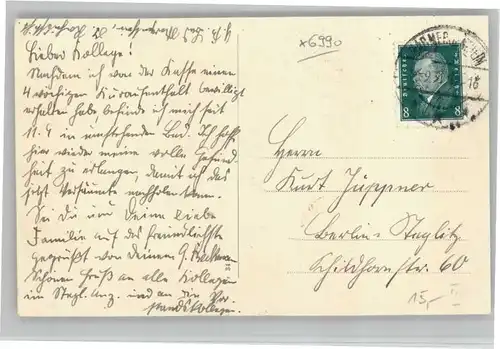 Lieber Kollege!
Nachdem ich von der Kasse einen
4 wöchigen Kuraufenthalt bewilligt
erhalten habe befinde ich mich seit
11.4 in Bad. Ich hoffe
hier wieder meine volle Gesund
heit zu erlangen, damit ich das
jetzt Versäumte nachholen kann.
Sei Du und Deine liebe
Familie auf das freundlichste
gegrüßt von deinem G.
Schönen Gruß an alle Kollegen
im Stegl. Anz. und an die Vor
standskollegen.
x6990
DEUTSCHES REICH
8 8
16
Herrn
Kurt Jüppner
Berlin-Steglitz
Schildhornstr. 60
15,-